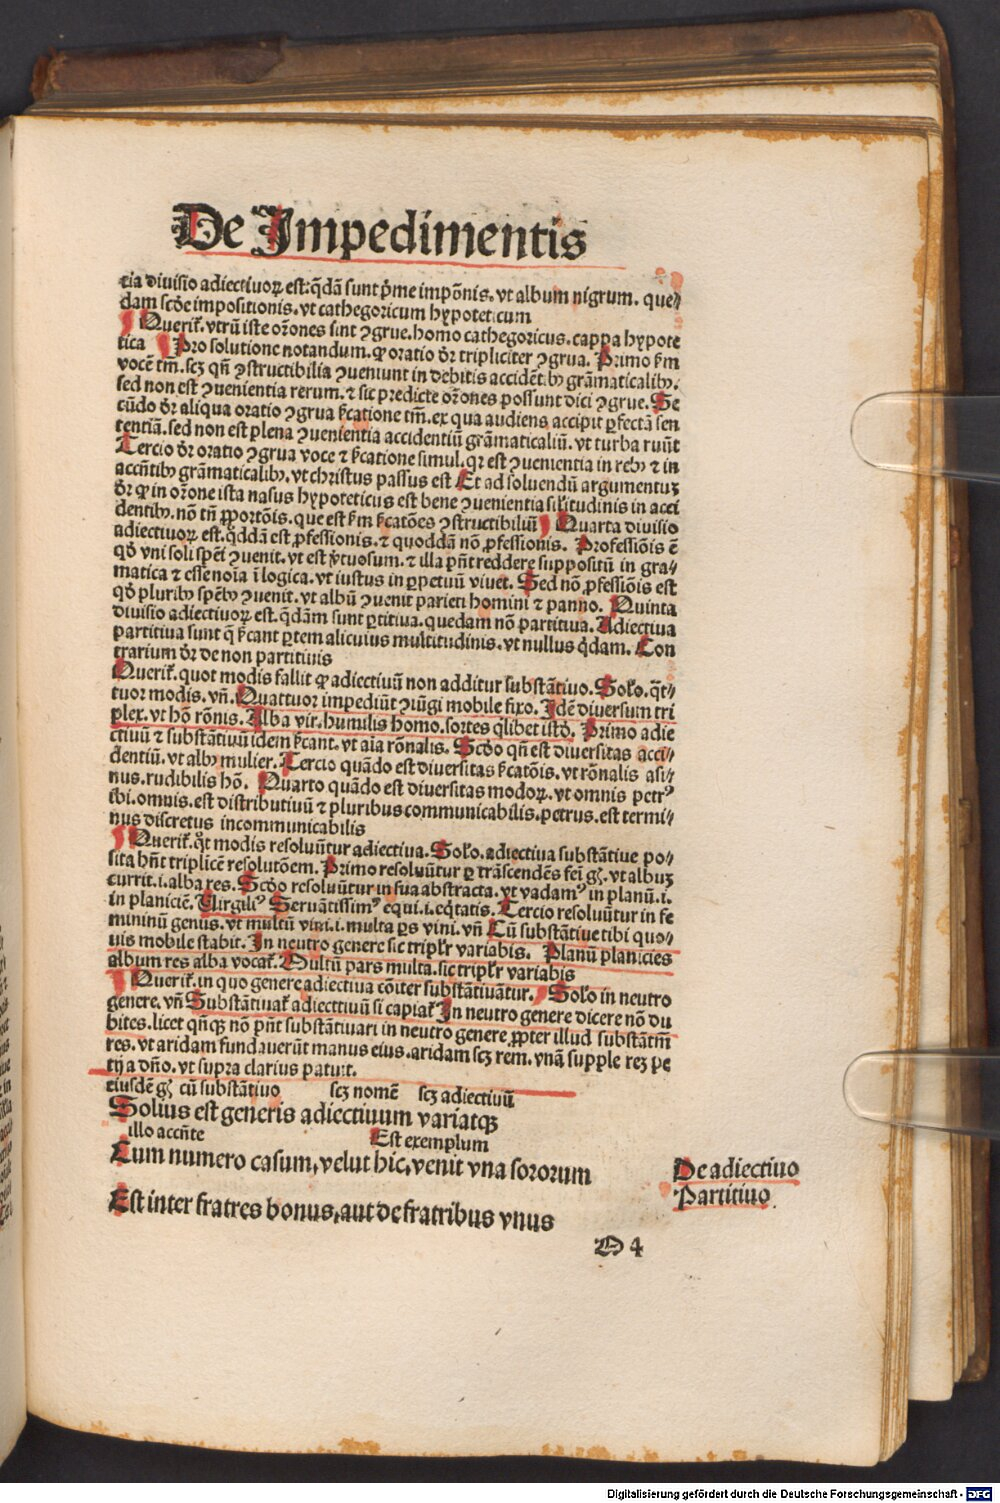 De Impedimentis
tia divisio adiectiuoꝝ est: q̃dã sunt p̃me impõnis. vt album nigrum. que⸗
dam scd̾e impositionis. vt cathegoricum hypoteticum
¶ Querit᷑. vtrũ iste or̃ones sint ꝯgrue. homo cathegoricus. cappa hypote
tica ¶ Pro solutione notandum. ꝙ oratio dr̃ tripliciter ꝯgrua. Primo s̃m
vocẽ tm̃. scꝫ qñ ꝯstructibilia ꝯueniunt in debitis accidẽtibꝰ grãmaticalibꝰ.
sed non est ꝯuenientia rerum. ⁊ sic predicte or̃ones possunt dici ꝯgrue. Se
cũdo dr̃ aliqua oratio ꝯgrua s̃catione tm̃. ex qua audiens accipit ꝑfectã sen
tentiã. sed non est plena ꝯuenientia accidentiũ grãmaticaliũ. vt turba ruũt
Tercio dr̃ oratio ꝯgrua voce ⁊ s̃catione simul. qr est ꝯuenientia in rebꝰ ⁊ in
accñtibꝰ grãmaticalibꝰ. vt christus passus est Et ad soluendũ argumentuꝫ
dr̃ ꝙ in or̃one ista nasus hypoteticus est bene ꝯuenientia silitudinis in acci
dentibꝰ. nõ tñ ꝓportõis. que est s̃m s̃catões ꝯstructibiliũ ¶ Quarta diuisio
adiectiuoꝝ est. qd̾dã est ꝓfessionis. ⁊ quoddã nõ ꝓfessionis. Professiõis ẽ
qd̾ vni soli spẽi ꝯuenit. vt est v̾tuosum. ⁊ illa pñt reddere suppositũ in gra⸗
matica ⁊ esse noĩa ĩ logica. vt iustus in ꝑpetuũ viuet. Sed nõ ꝓfessiõis est
qd̾ pluribꝰ spẽbꝰ ꝯuenit. vt albũ ꝯuenit parieti homini ⁊ panno. Quinta
diuisio adiectiuoꝝ est. q̃dãm sunt ꝑtitiua. quedam nõ partitiua. Adiectiua
partitiua sunt q̃ s̃cant ꝑtem alicuius multitudinis. vt nullus qd̾am. Con
trarium dr̃ de non partitiuis
Querit᷑. quot modis fallit ꝙ adiectiuũ non additur substãtiuo. Solo. q̃t⸗
tuor modis. vñ. Quattuor impediũt ꝯiũgi mobile fixo. Idẽ diuersum tri
plex. vt hõ rõnis. Alba vir. humilis homo. sortes qlibet istd̾. Primo adie
ctiuũ ⁊ substãtiuũ idem s̃cant. vt aĩa rõnalis. Scd̾o qñ est diuersitas acci⸗
dentiũ. vt albꝰ mulier. Tercio quãdo est diuersitas s̃catõis. vt rõnalis asi⸗
nus. rudibilis hõ. Quarto quãdo est diuersitas modoꝝ. vt omnis petrꝰ
ibi. omnis. est distributiuũ ⁊ pluribus communicabilis. petrus. est termi⸗
nus discretus incommunicabilis
¶ Querit᷑. qt̾ modis resoluũtur adiectiua. Solo. adiectiua substãtiue po⸗
sita hñt triplicẽ resolutõem. Primo resoluũtur ꝑ trãscendẽs fei gñ. vt albuꝫ
currit. i. alba res. Scd̾o resoluũtur in sua abstracta. vt vadamꝰ in planũ. i.
in planiciẽ. Virgiliꝰ Seruãtissimꝰ equi. i. eq̃tatis. Tercio resoluũtur in fe
mininũ genus. vt multũ vini. i. multa ꝑs vini. vñ Cũ substãtiue tibi quo⸗
uis mobile stabit. In neutro genere sic tripłr variabis. Planũ planicies
album res alba vocat᷑. Multũ pars multa. sic tripłr variabis
¶ Querit᷑. in quo genere adiectiua cõiter substãtiuãtur. ¶ Solo in neutro
genere. vñ Substãtiuat᷑ adiecttiuũ si capiat᷑ In neutro genere dicere nõ du
bites. licet qñqꝫ nõ pñt substãtiuari in neutro genere ꝓpter illud substãtm̃
res. vt aridam fundauerũt manus eius. aridam scꝫ rem. vnã supple reꝫ pe
tij a dño. vt supra clarius patuit.
eiusdẽ gñ cũ substãtiuo scꝫ nomẽ scꝫ adiectiuũ
Solius est generis adiectiuum variatqꝫ
illo accñte Est exemplum
Cum numero casum, velut hic, venit vna sororum
De adiectiuo
Partitiuo.
Est inter fratres bonus, aut de fratribus vnus
O 4
Digitalisierung gefördert durch die Deutsche Forschungsgemeinschaft - DFG